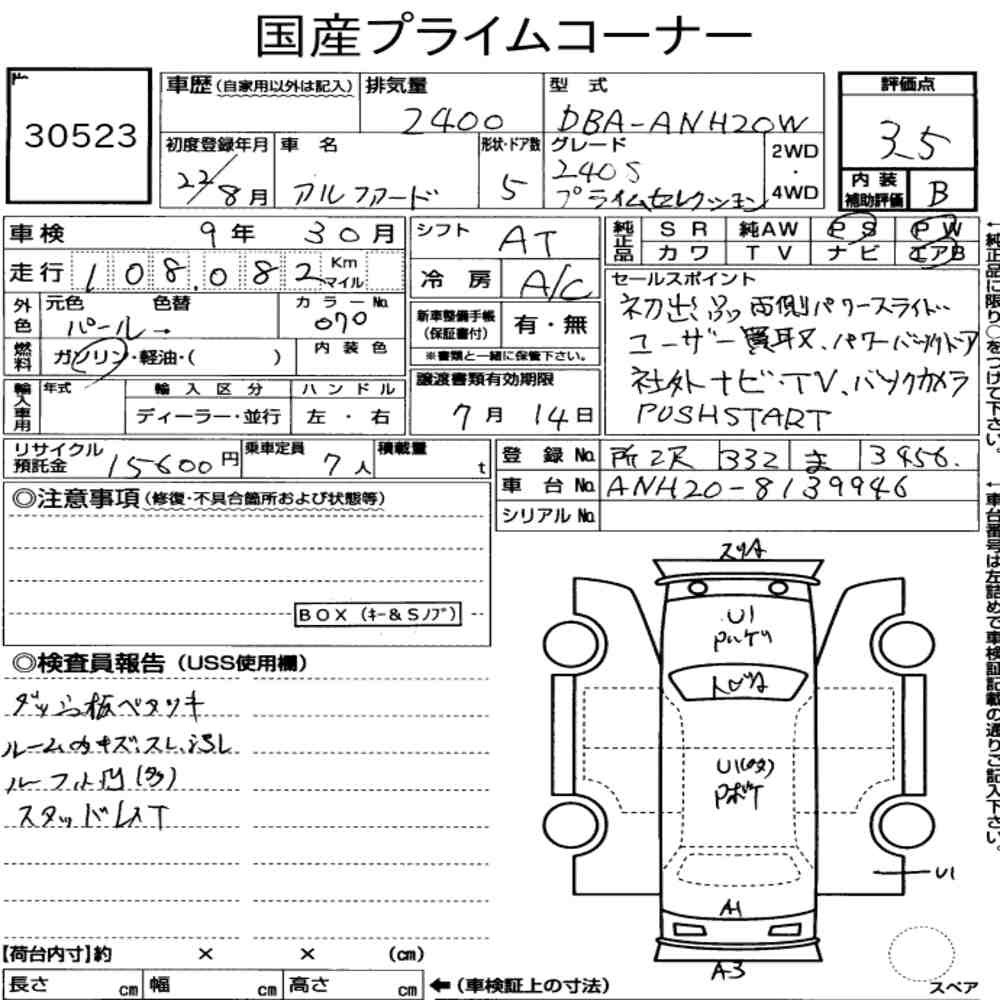 国産プライムコーナー
30523
車歴(自家用以外は記入)
排気量
2400
型式
DBA-ANH20W
評価点
3.5
初度登録年月
22/8月
車名
アルファード
形状・ドア数
5
グレード
240S
プライムセレクション
2WD
・
4WD
内装
補助評価
B
車検 9年 30月
走行 108,082 Km
マイル
シフト AT
冷房 A/C
純正品
SR 純AW PS PW
カワ TV ナビ エアB
外色
元色 色替
パール→
カラーNo.
070
燃料
ガソリン・軽油・( )
内装色
新車整備手帳
(保証書付)
有・無
※書類と一緒に保管下さい。
セールスポイント
初出品 両側パワースライド
ユーザー買取、パワーバックドア
社外ナビ・TV、バックカメラ
PUSHSTART
輸入車用
年式
輸入区分
ハンドル
ディーラー・並行
左・右
譲渡書類有効期限
7月14日
リサイクル
預託金
15600円
乗車定員
7人
積載量
t
登録No. 所沢 332 ま 3456.
車台No. ANH20-8139946
シリアルNo.
←純正品に限り○をつけて下さい。
←車台番号は左詰めで車検証記載の通りご記入下さい。
◎注意事項(修復・不具合箇所および状態等)
BOX(キー&Sノブ)
◎検査員報告(USS使用欄)
ダッシュ板ベタツキ
ルーム内キズ、スレ、汚レ
スタッドレスT
スリキ
U1
トビキ
U1
U1
A1
A-3
スペア
【荷台内寸】約 × × (cm)
長さ cm 幅 cm 高さ cm ←(車検証上の寸法)